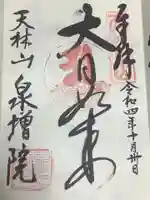 奉拝
令和四年十月卅日
大日如来
天林山
泉増院